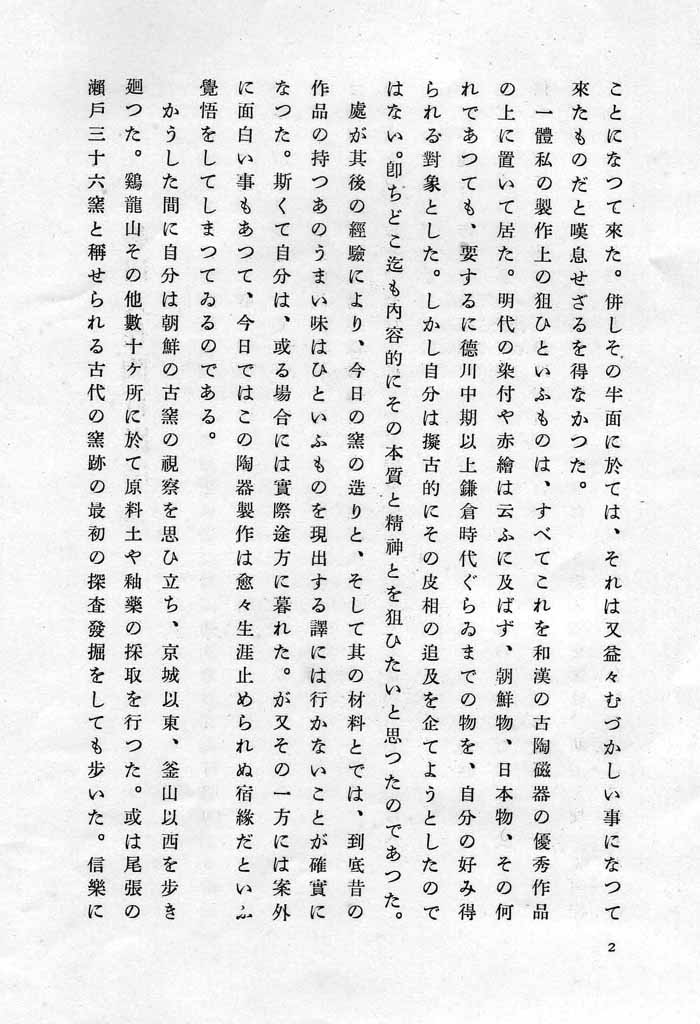 ことになつて來た。併しその半面に於ては、それは又益々むづかしい事になつて
來たものだと嘆息せざるを得なかつた。
一體私の製作上の狙ひといふものは、すべてこれを和漢の古陶磁器の優秀作品
の上に置いて居た。明代の染付や赤繪は云ふに及ばず、朝鮮物、日本物、その何
れであつても、要するに德川中期以上鎌倉時代ぐらゐまでの物を、自分の好み得
られる對象とした。しかし自分は擬古的にその皮相の追及を企てようとしたので
はない。卽ちどこ迄も內容的にその本質と精神とを狙ひたいと思つたのであつた。
處が其後の經驗により、今日の窯の造りと、そして其の材料とでは、到底昔の
作品の持つあのうまい味はひといふものを現出する譯には行かないことが確實に
なつた。斯くて自分は、或る場合には實際途方に暮れた。が又その一方には案外
に面白い事もあつて、今日ではこの陶器製作は愈々生涯止められぬ宿緣だといふ
覺悟をしてしまつてゐるのである。
かうした間に自分は朝鮮の古窯の視察を思ひ立ち、京城以東、釜山以西を步き
廻つた。鷄龍山その他數十ヶ所に於て原料土や釉藥の採取を行つた。或は尾張の
瀨戶三十六窯と稱せられる古代の窯跡の最初の探査發掘をしても步いた。信樂に
2